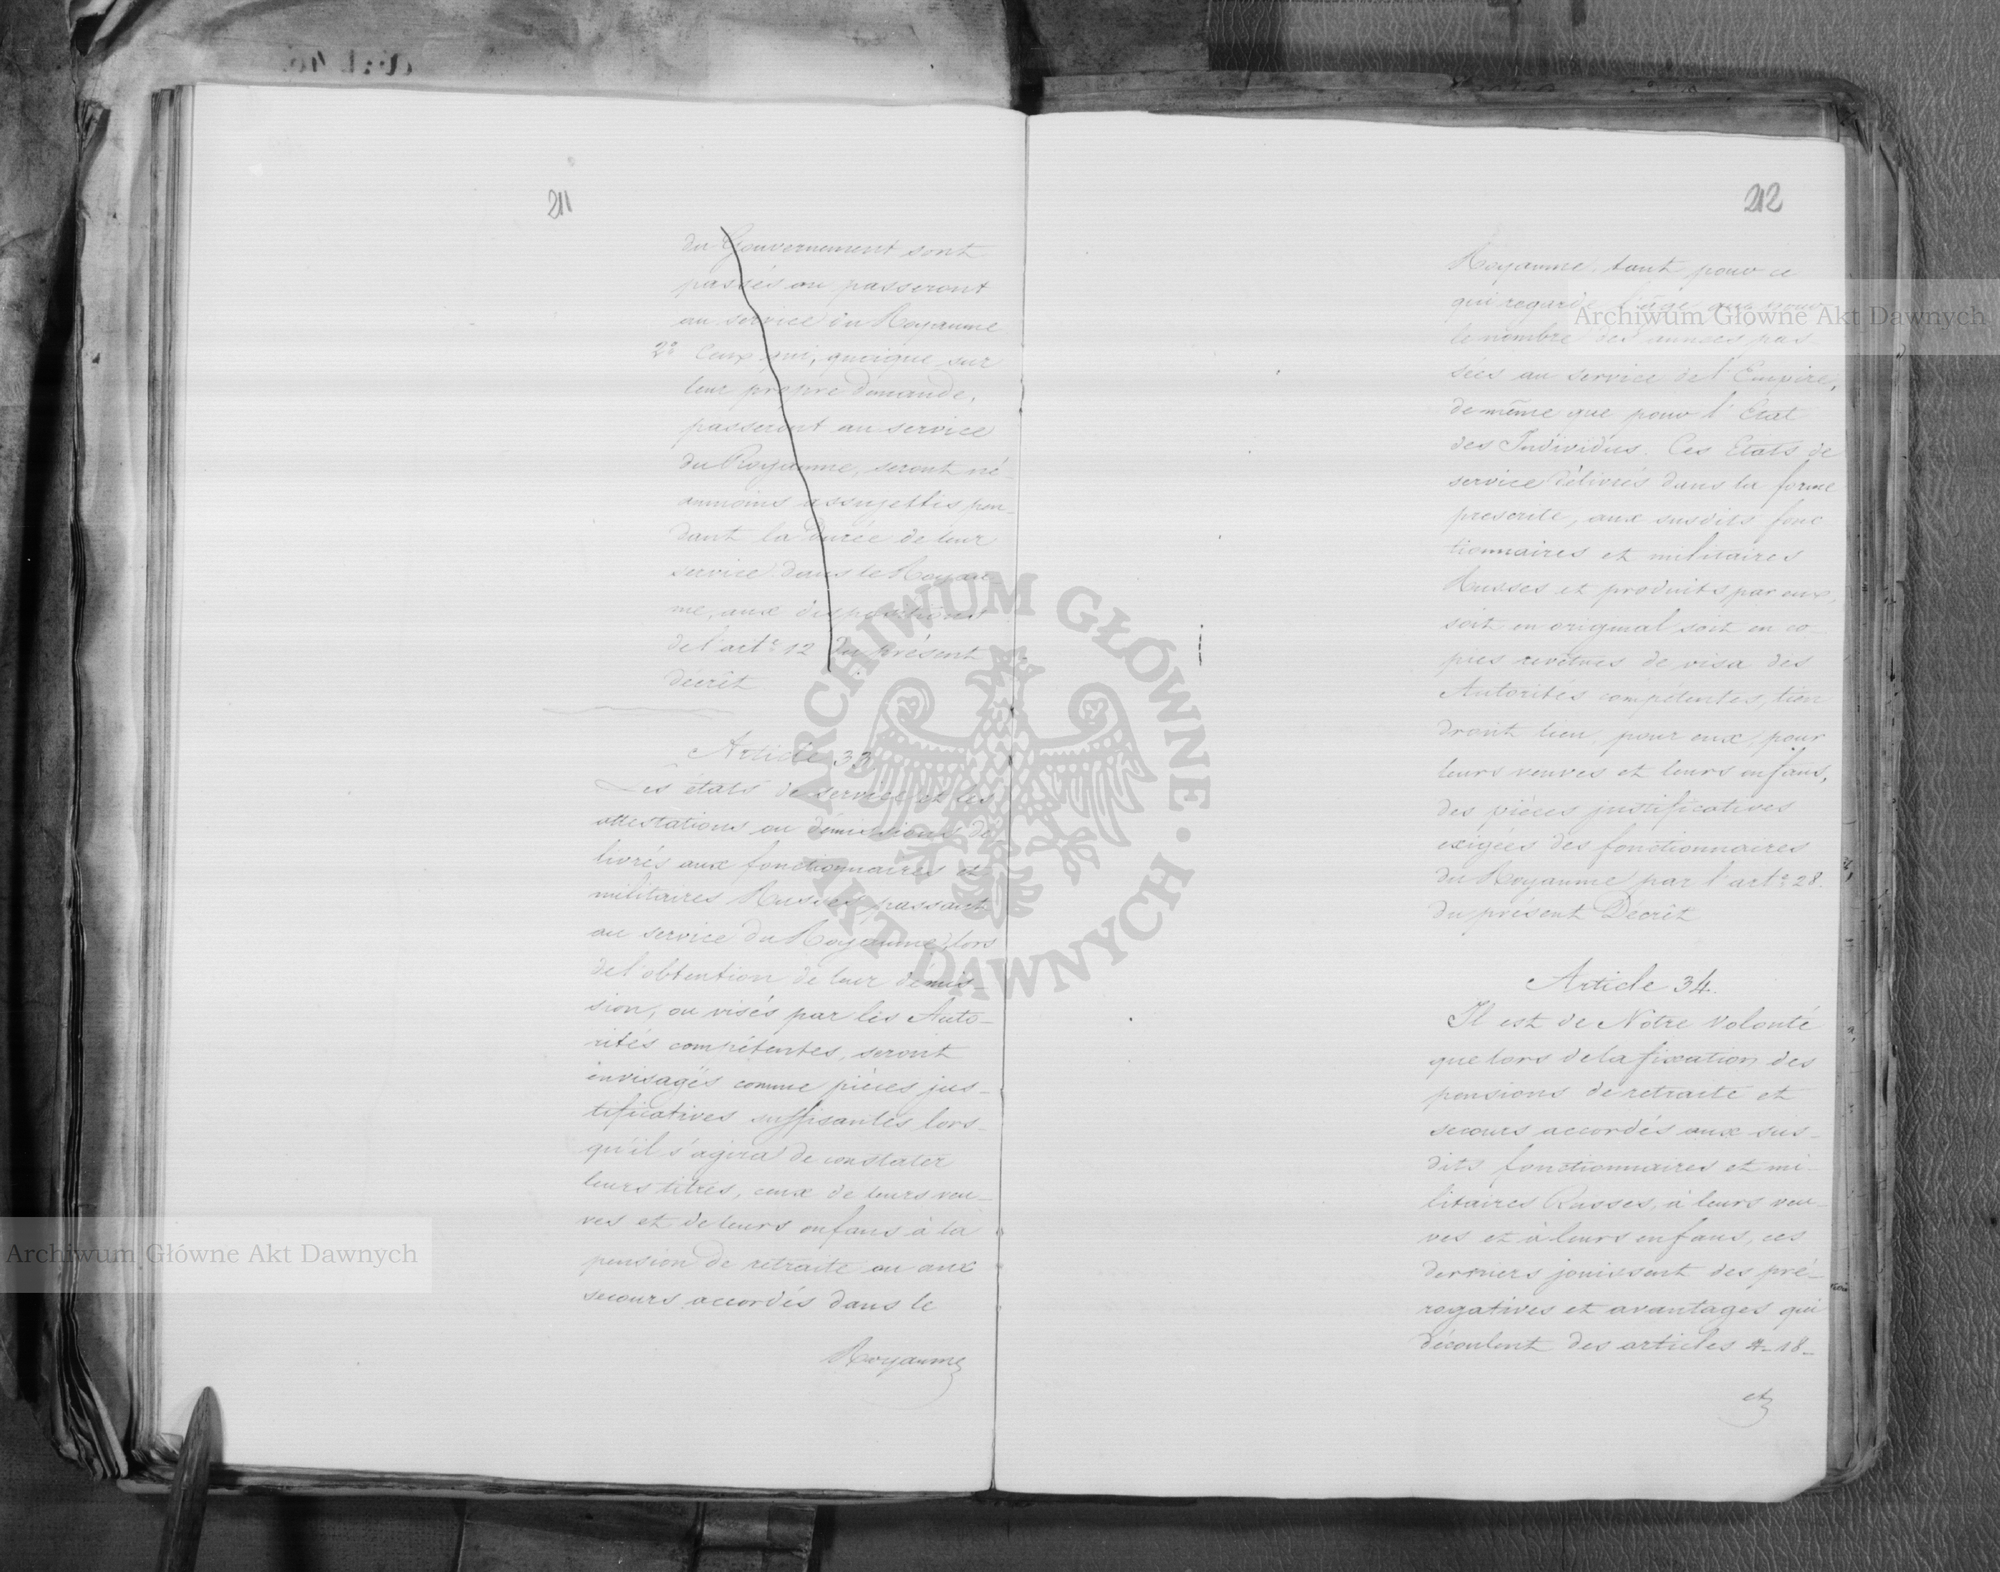 211
du Gouvernement sont
passés ou passeront
au service du Royaume
2º Ceux qui, quoique sur
leur propre demande,
passeront au service
du Royaume, seront né-
anmoins assujettis pen-
dant la durée de leur
service dans le Royau-
me, aux dispositions
de l'artº 12 du présent
décrêt
Article 33
Les états de service et les
attestations ou démissions dé-
livrés aux fonctionnaires et
militaires Russes passant
au service du Royaume, lors
de l'obtention de leur démis-
sion, ou visés par les Auto-
rités compétentes, seront
envisagés comme pièces jus-
tificatives suffisantes lors-
qu'il s'agira de constater
leurs titres, ceux de leurs veu-
ves et de leurs enfans à la
pension de retraite ou aux
secours accordés dans le
Royaume
212
Royaume, tant pour ce
qui regarde l'âge que pour
le nombre des années pas
sées au service de l'Empire,
de même que pour l'Etat
des Individus. Ces Etats de
service délivrés dans la forme
prescrite, aux susdits fonc
tionnaires et militaires
Russes et produits par eux,
soit en original soit en co-
pies revêtues de visa des
Autorités compétentes, tien
dront lieu, pour eux, pour
leurs veuves et leurs enfans,
des pièces justificatives
exigées des fonctionnaires
du Royaume par l'artº 28.
du présent Décrêt
Article 34.
Il est de Notre volonté
que lors de la fixation des
pensions de retraite et
secours accordés aux sus-
dits fonctionnaires et mi-
litaires Russes, à leurs veu-
ves et à leurs enfans, ces
derniers jouissent des pré-
rogatives et avantages qui
découlent des articles 4-18-
et
Archiwum Główne Akt Dawnych
Archiwum Główne Akt Dawnych
ARCHIWUM GŁÓWNE AKT DAWNYCH